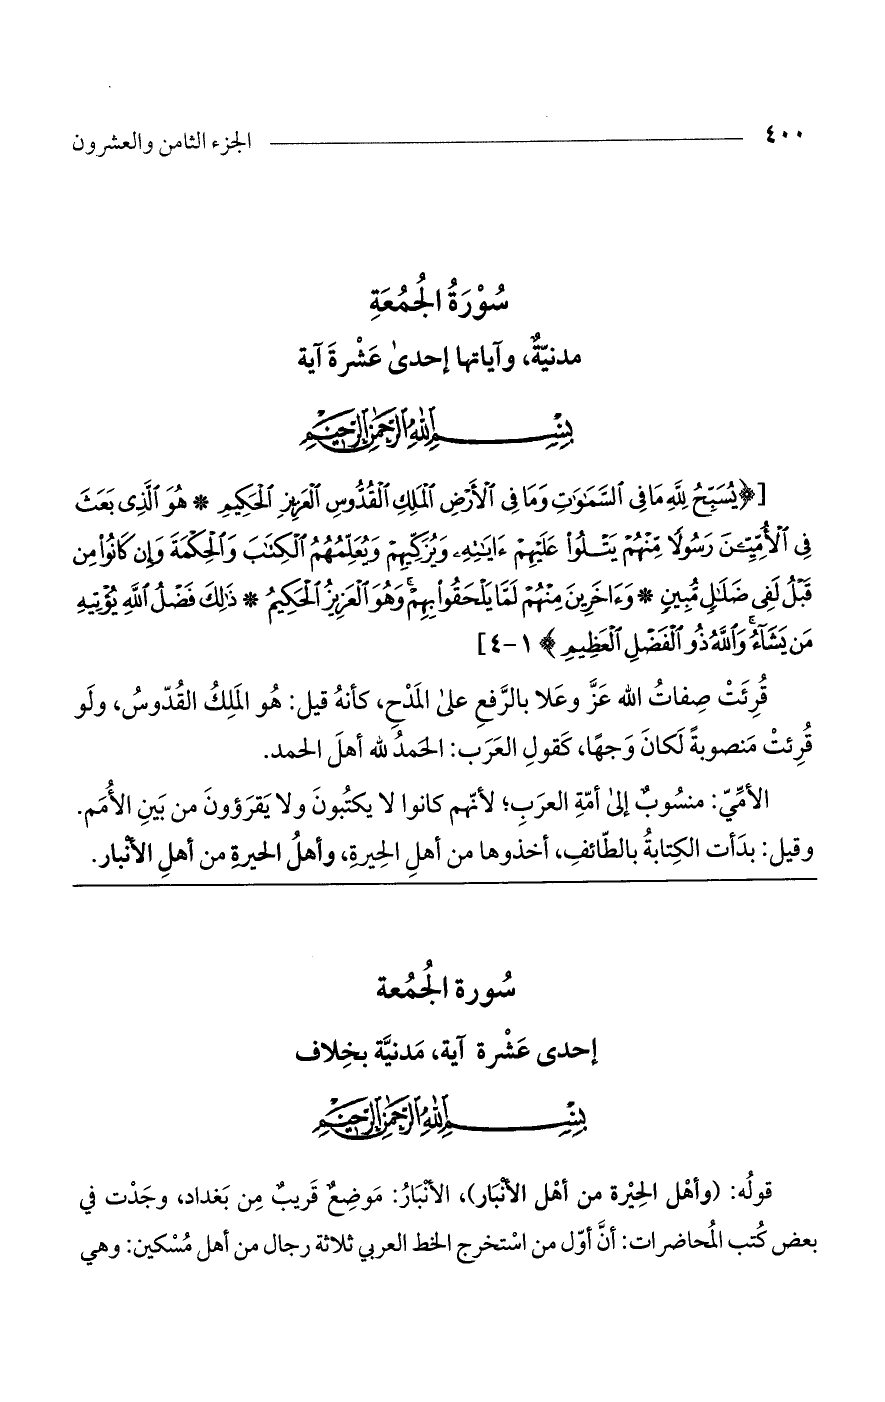 ٤٠٠ الجزء الثامن والعشرون
سُوْرَةُ الجُمُعَةِ
مدنيّةٌ، وآياتها إحدىٰ عَشْرةَ آية
بِسْمِ اللَّهِ الرَّحْمَٰنِ الرَّحِيمِ
[﴿يُسَبِّحُ لِلَّهِ مَا فِى ٱلسَّمَٰوَٰتِ وَمَا فِى ٱلْأَرْضِ ٱلْمَلِكِ ٱلْقُدُّوسِ ٱلْعَزِيزِ ٱلْحَكِيمِ * هُوَ ٱلَّذِى بَعَثَ
فِى ٱلْأُمِّيِّـۧنَ رَسُولًا مِّنْهُمْ يَتْلُوا۟ عَلَيْهِمْ ءَايَٰتِهِۦ وَيُزَكِّيهِمْ وَيُعَلِّمُهُمُ ٱلْكِتَٰبَ وَٱلْحِكْمَةَ وَإِن كَانُوا۟ مِن
قَبْلُ لَفِى ضَلَٰلٍ مُّبِينٍ * وَءَاخَرِينَ مِنْهُمْ لَمَّا يَلْحَقُوا۟ بِهِمْ ۚ وَهُوَ ٱلْعَزِيزُ ٱلْحَكِيمُ * ذَٰلِكَ فَضْلُ ٱللَّهِ يُؤْتِيهِ
مَن يَشَآءُ ۚ وَٱللَّهُ ذُو ٱلْفَضْلِ ٱلْعَظِيمِ﴾ ١-٤]
قُرِئَتْ صِفاتُ الله عَزَّ وعَلا بالرَّفعِ علىٰ المَدْحِ، كأنهُ قيل: هُو المَلِكُ القُدّوسُ، ولَو
قُرِئتْ مَنصوبةً لَكانَ وَجهًا، كَقولِ العَرَب: الحَمدُ لله أهلَ الحمد.
الأمِّيّ: منسُوبٌ إلىٰ أمّةِ العرَبِ؛ لأنّهم كانوا لا يكتُبونَ ولا يَقرَؤونَ من بَينِ الأُمَم.
وقيل: بدَأت الكِتابةُ بالطّائفِ، أخذوها من أهلِ الحِيرةِ، وأهلُ الحيرةِ من أهلِ الأنْبار.
سُورة الجُمُعة
إحدى عَشْرة آية، مَدنيَّة بخِلاف
بِسْمِ اللَّهِ الرَّحْمَٰنِ الرَّحِيمِ
قولُه: (وأهْل الحِيْرة من أهْل الأنْبار)، الأنْبَارُ: مَوضِعٌ قَريبٌ مِن بَغداد، وجَدْت في
بعض كُتب المُحاضرات: أنَّ أوّل من اسْتخرج الخط العربي ثلاثة رجال من أهل مُسْكين: وهي